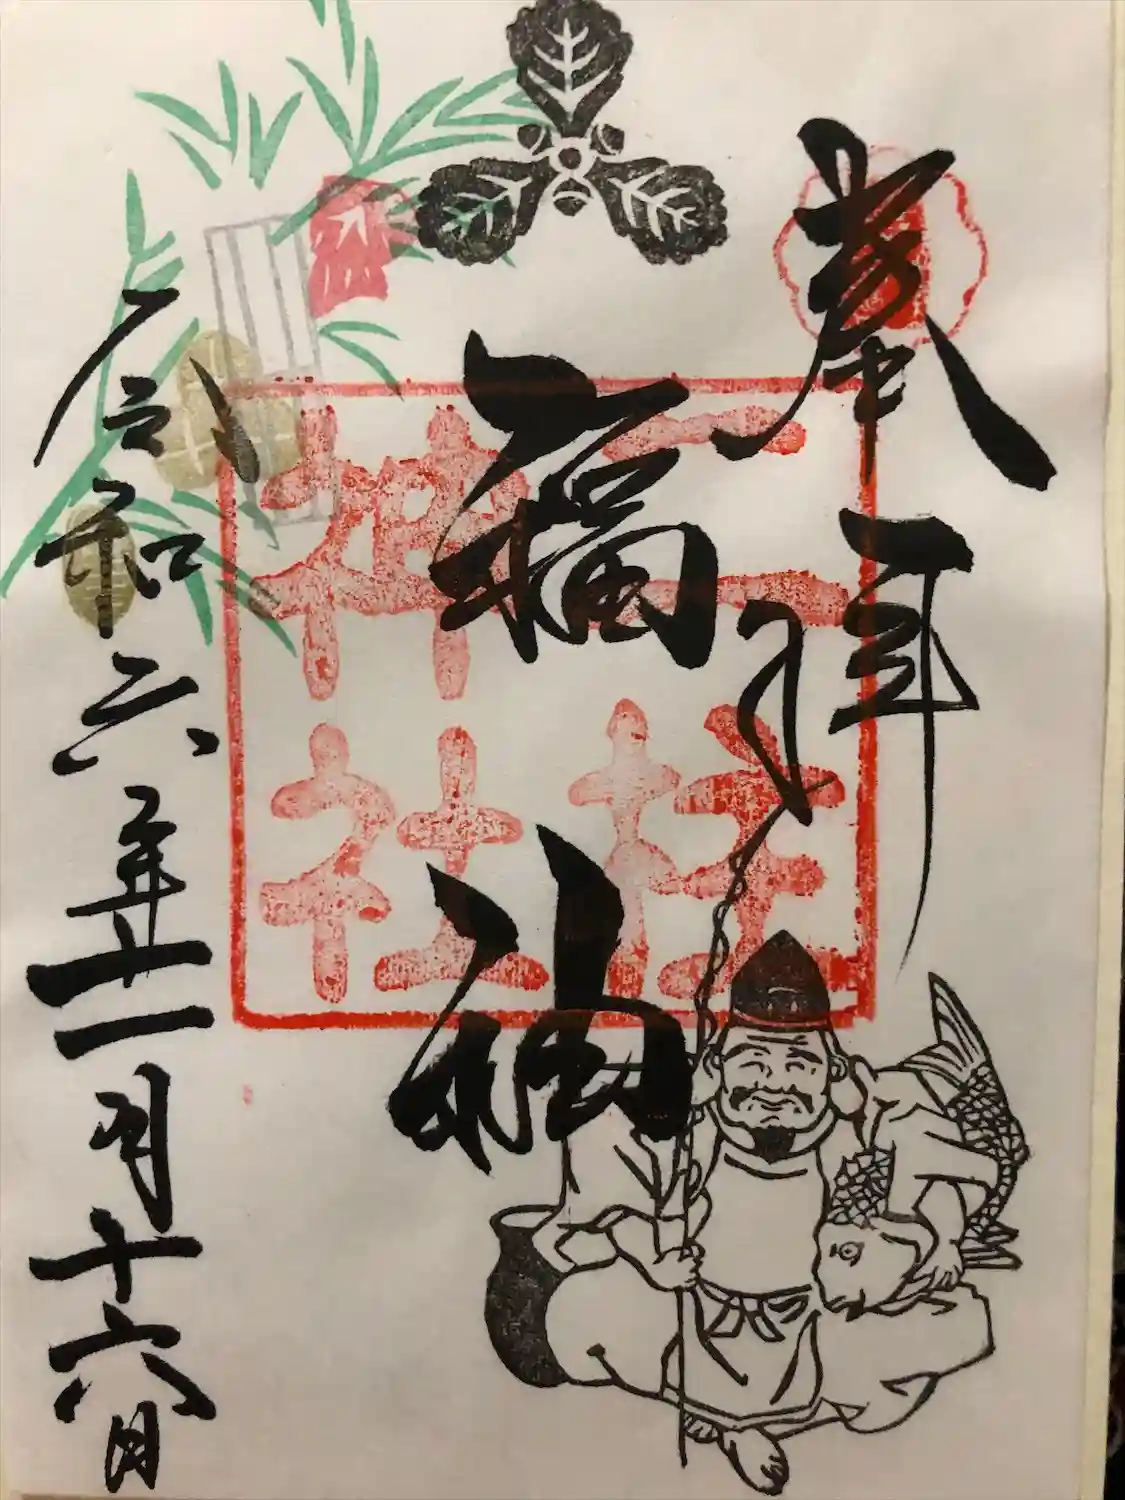 奉拝
二柱
神社
福神
令和六年十一月十六日